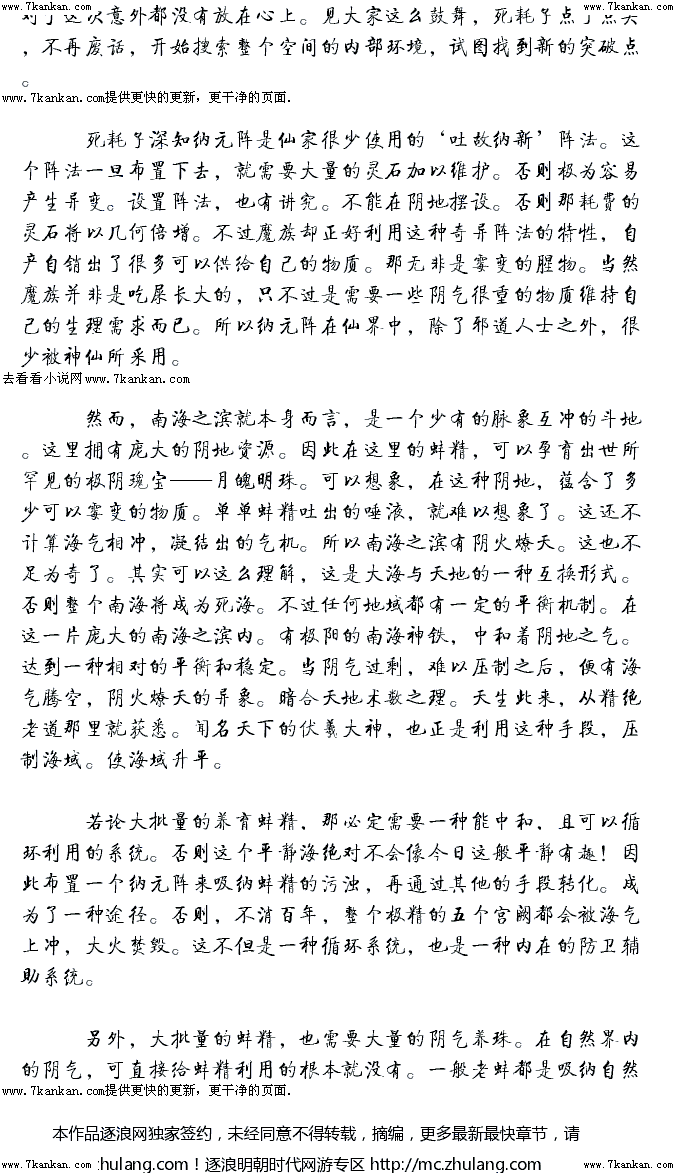 www.7kankan.com
www.7kankan.com
对于这次意外都没有放在心上。见大家这么鼓舞，死耗子点了点头
，不再废话，开始搜索整个空间的内部环境，试图找到新的突破点
。
www.7kankan.com提供更快的更新，更干净的页面.
死耗子深知纳元阵是仙家很少使用的‘吐故纳新’阵法。这
个阵法一旦布置下去，就需要大量的灵石加以维护。否则极为容易
产生异变。设置阵法，也有讲究。不能在阴地摆设。否则那耗费的
灵石将以几何倍增。不过魔族却正好利用这种奇异阵法的特性，自
产自销出了很多可以供给自己的物质。那无非是霉变的腥物。当然
魔族并非是吃屎长大的，只不过是需要一些阴气很重的物质维持自
己的生理需求而已。所以纳元阵在仙界中，除了邪道人士之外，很
少被神仙所采用。
去看看小说网www.7kankan.com
然而，南海之滨就本身而言，是一个少有的脉象互冲的斗地
。这里拥有庞大的阴地资源。因此在这里的蚌精，可以孕育出世所
罕见的极阴瑰宝——月魄明珠。可以想象，在这种阴地，蕴含了多
少可以霉变的物质。单单蚌精吐出的唾液，就难以想象了。这还不
计算海气相冲，凝结出的气机。所以南海之滨有阴火燎天。这也不
足为奇了。其实可以这么理解，这是大海与天地的一种互换形式。
否则整个南海将成为死海。不过任何地域都有一定的平衡机制。在
这一片庞大的南海之滨内。有极阳的南海神铁，中和着阴地之气。
达到一种相对的平衡和稳定。当阴气过剩，难以压制之后，便有海
气腾空，阴火燎天的异象。暗合天地术数之理。天生此来，从精绝
老道那里就获悉。闻名天下的伏羲大神，也正是利用这种手段，压
制海域。使海域升平。
若论大批量的养育蚌精，那必定需要一种能中和，且可以循
环利用的系统。否则这个平静海绝对不会像今日这般平静有趣！因
此布置一个纳元阵来吸纳蚌精的污浊，再通过其他的手段转化。成
为了一种途径。否则，不消百年，整个极精的五个宫阙都会被海气
上冲，大火焚毁。这不但是一种循环系统，也是一种内在的防卫辅
助系统。
另外，大批量的蚌精，也需要大量的阴气养珠。在自然界内
的阴气，可直接给蚌精利用的根本就没有。一般老蚌都是吸纳自然
www.7kankan.com提供更快的更新，更干净的页面.
本作品逐浪网独家签约，未经同意不得转载，摘编，更多最新最快章节，请
www.7kankan.com zhulang.com！逐浪明朝时代网游专区 http://mc.zhulang.com/ www.7kankan.com